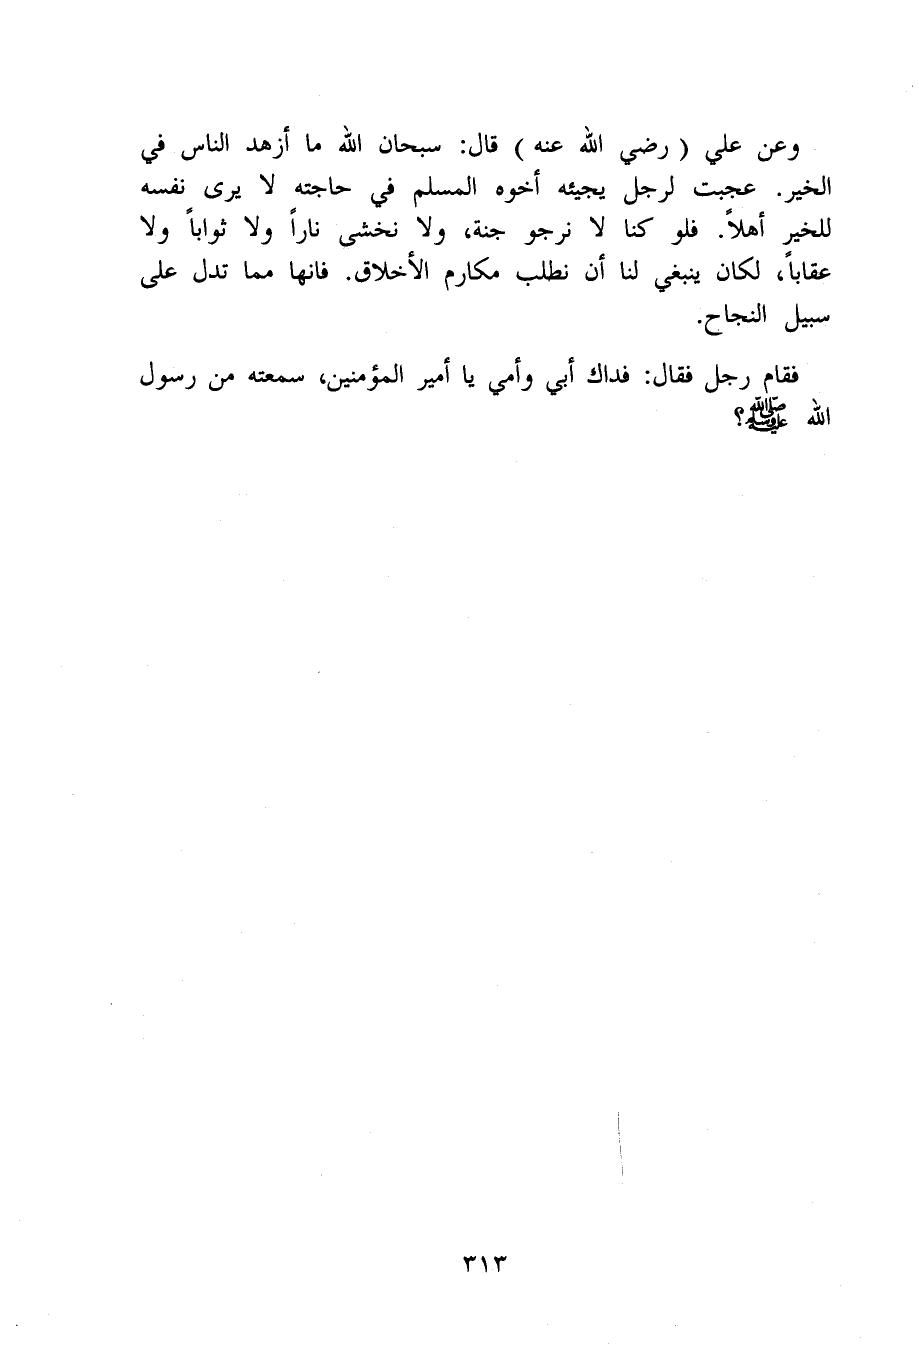 وعن علي ( رضي الله عنه ) قال: سبحان الله ما أزهد الناس في
الخير. عجبت لرجل يجيئه أخوه المسلم في حاجته لا يرى نفسه
للخير أهلاً. فلو كنا لا نرجو جنة، ولا نخشى ناراً ولا ثواباً ولا
عقاباً، لكان ينبغي لنا أن نطلب مكارم الأخلاق. فانها مما تدل على
سبيل النجاح.
فقام رجل فقال: فداك أبي وأمي يا أمير المؤمنين، سمعته من رسول
الله ﷺ؟
٣١٣